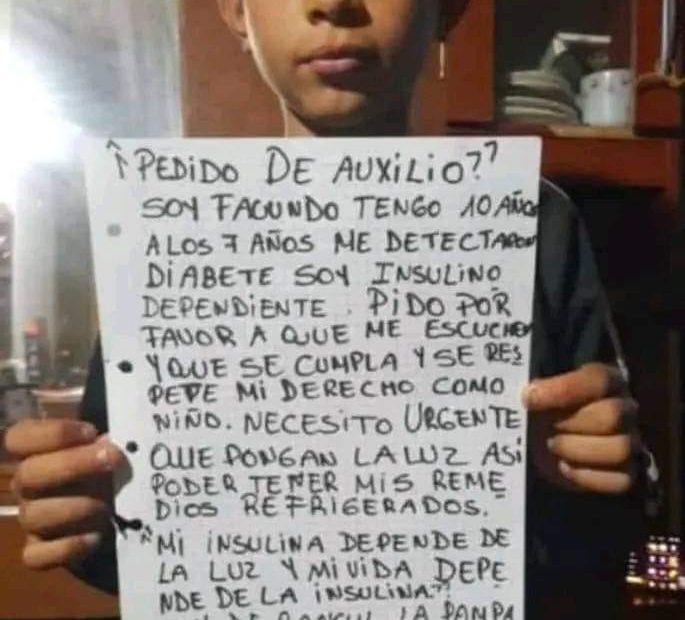 ¡PEDIDO DE AUXILIO??
SOY FACUNDO TENGO 10 AÑOS
A LOS 7 AÑOS ME DETECTARON
DIABETE SOY INSULINO
DEPENDIENTE. PIDO POR
FAVOR A QUE ME ESCUCHEN
Y QUE SE CUMPLA Y SE RES
PETE MI DERECHO COMO
NIÑO. NECESITO URGENTE
QUE PONGAN LA LUZ ASI
PODER TENER MIS REME
DIOS REFRIGERADOS.
"MI INSULINA DEPENDE DE
LA LUZ Y MI VIDA DEPE
NDE DE LA INSULINA"!
DE LA PAMPA